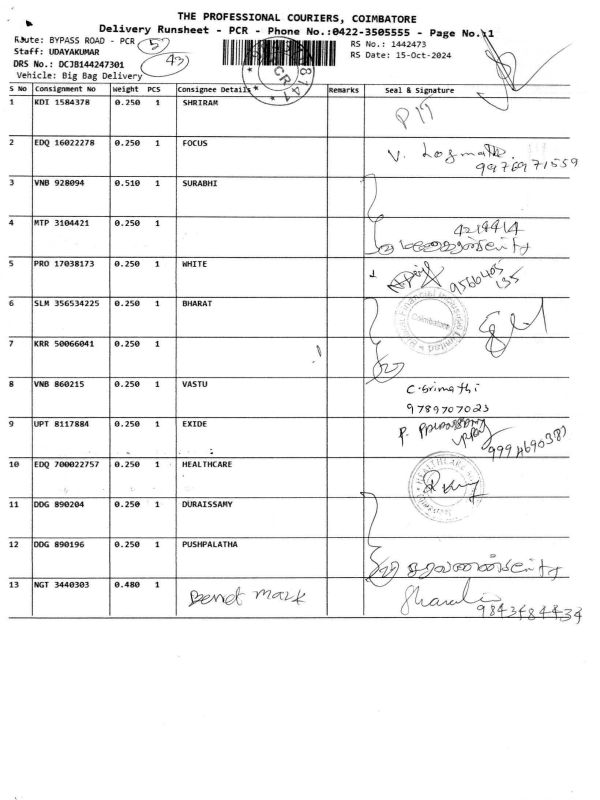 THE PROFESSIONAL COURIERS, COIMBATORE
Delivery Runsheet - PCR - Phone No.:0422-3505555 - Page No.:1
Route: BYPASS ROAD - PCR
RS No.: 1442473
Staff: UDAYAKUMAR
RS Date: 15-Oct-2024
DRS No.: DCJB144247301
43
Vehicle: Big Bag Delivery
S No Consignment No Weight PCS Consignee Details Remarks Seal & Signature
1 KDI 1584378 0.250 1 SHRIRAM
2 EDQ 16022278 0.250 1 FOCUS
9976971559
3 VNB 928094 0.510 1 SURABHI
4 MTP 3104421 0.250 1
5 PRO 17038173 0.250 1 WHITE
9566405
135
6 SLM 356534225 0.250 1 BHARAT
Coimbatore
7 KRR 50066041 0.250 1
8 VNB 860215 0.250 1 VASTU
C. Srimathi
9789707023
9 UPT 8117884 0.250 1 EXIDE
10 EDQ 700022757 0.250 1 HEALTHCARE
HEALTHCARE
11 DDG 890204 0.250 1 DURAISSAMY
12 DDG 890196 0.250 1 PUSHPALATHA
13 NGT 3440303 0.480 1 Benet mark
9843484434